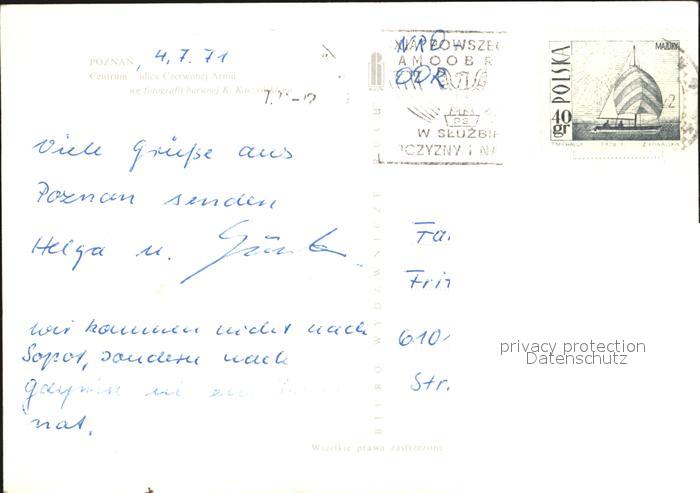 POZNAŃ, 4.7.71
Centrum ulica Czerwonej Armii
wg fotografii barwnej K. Kaczyńskiego
NRD-
DDR
POWSZEC
W SŁUŻBIE
CZYZNY I NA
POLSKA
40 gr
Viele Grüße aus
Poznan senden
Helga u. Günter
wir kommen nicht nach
Sopot, sondern nach
Gdynia
nat.
Fa.
Frit
610
Str.
BIURO WYDAWNICZE RUCH
Wszelkie prawa zastrzeżone
privacy protection
Datenschutz